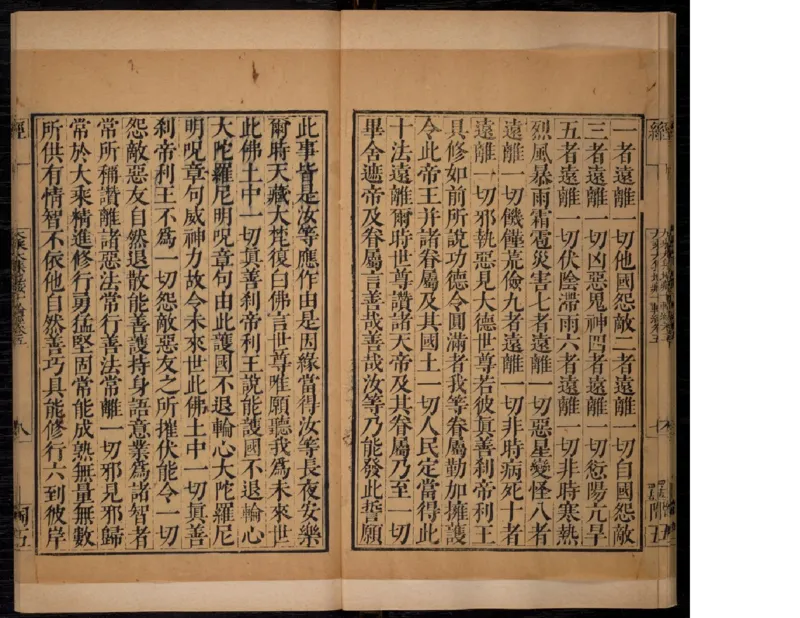 一者遠離一切他國怨敵二者遠離一切自國怨敵
三者遠離一切凶惡鬼神四者遠離一切愆陽亢旱
五者遠離一切伏陰滯雨六者遠離一切非時寒熱
烈風暴雨霜雹災害七者遠離一切惡星變怪八者
遠離一切饑饉荒儉九者遠離一切非時病死十者
遠離一切邪執惡見大德世尊若彼眞善剎帝利王
具修如前所說功德令圓滿者我等眷屬勤加擁護
令此帝王幷諸眷屬及其國土一切人民定當得此
十法遠離爾時世尊讚諸天帝及其眷屬乃至一切
畢舍遮帝及眷屬言善哉善哉汝等乃能發此誓願
此事皆是汝等應作由是因緣當得汝等長夜安樂
爾時天藏大梵復白佛言世尊唯願聽我爲未來世
此佛土中一切眞善剎帝利王說能護國不退輪心
大陀羅尼明呪章句由此護國不退輪心大陀羅尼
明呪章句威神力故令未來世此佛土中一切眞善
剎帝利王不爲一切怨敵惡友之所摧伏能令一切
怨敵惡友自然退散能善護持身語意業爲諸智者
常所稱讚離諸惡法常行善法常離一切邪見邪歸
常於大乘精進修行勇猛堅固常能成熟無量無數
所化有情智不依他自然善巧具能修行六到彼岸